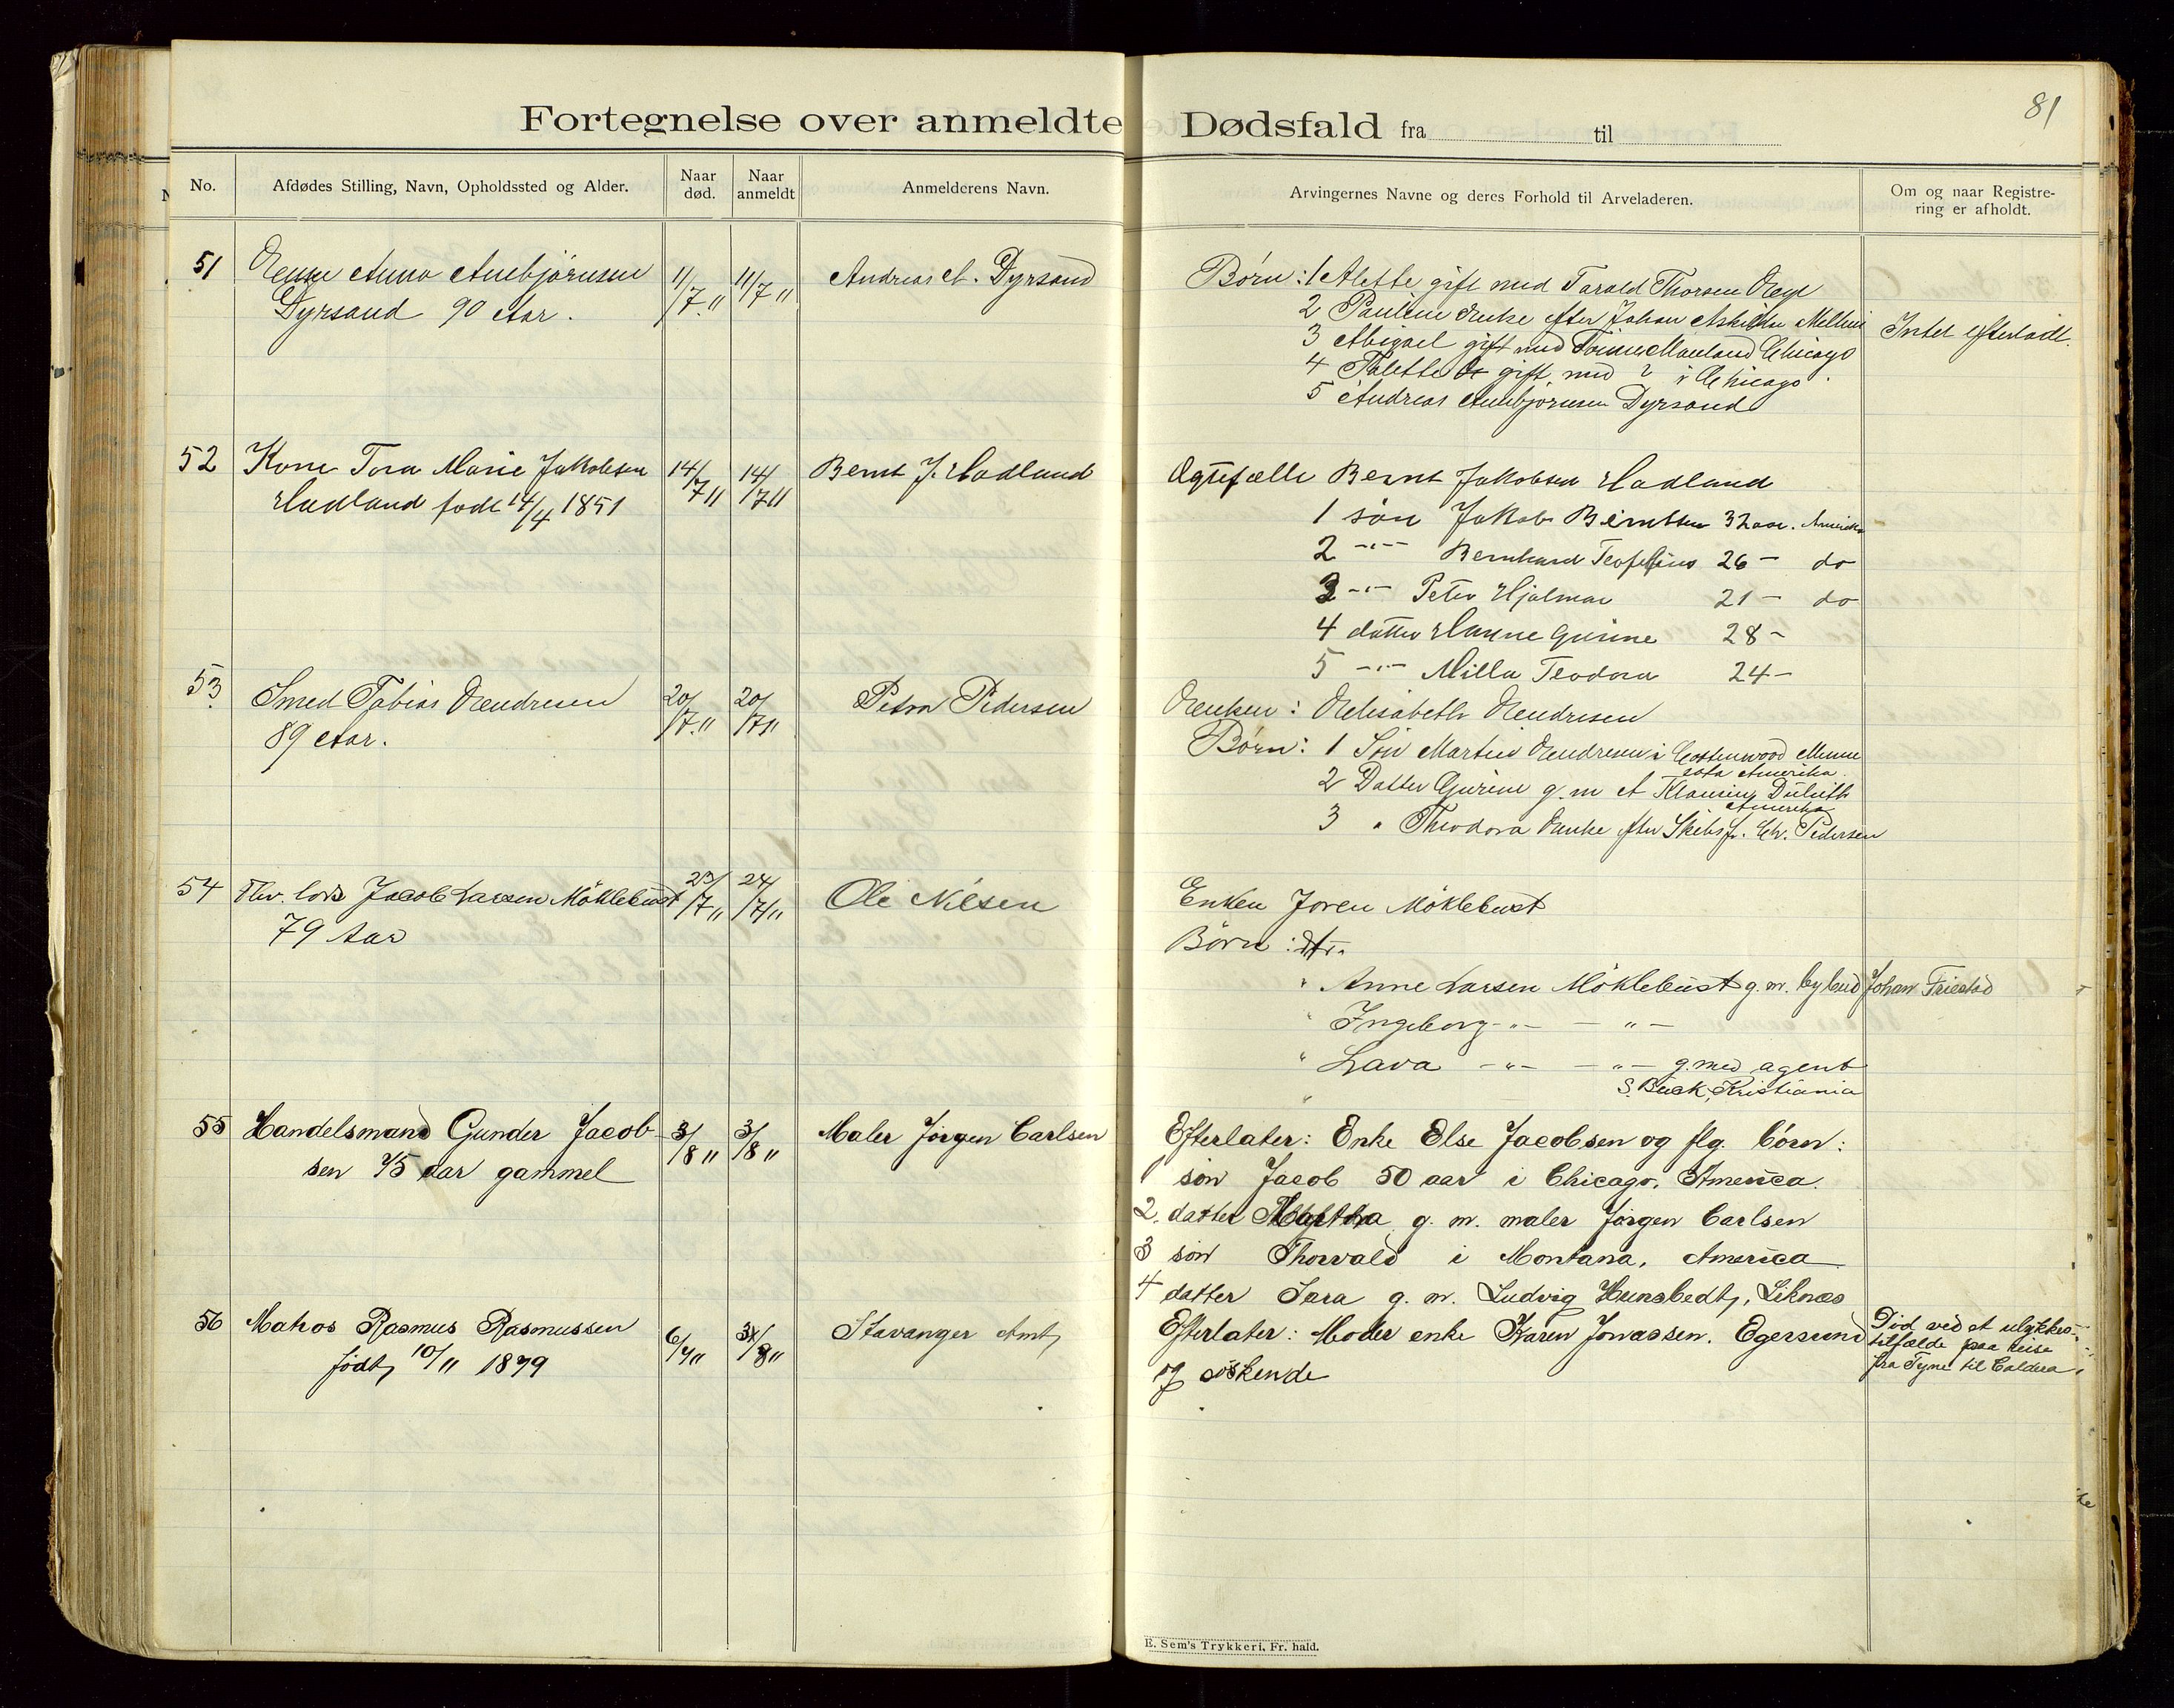 81
Fortegnelse over anmeldte Dødsfald fra til
No.
Afdødes Stilling, Navn, Opholdssted og Alder.
Naar død.
Naar anmeldt
Anmelderens Navn.
Arvingernes Navne og deres Forhold til Arveladeren.
Om og naar Registre-
ring er afholdt.
51 Enke Anna Ambjørnsen 11/7 " 11/7 " Andreas A. Dyrsand
Dyrsand 90 Aar.
Børn: 1 Alette gift med Tarald Thorsen
2 Pauline Enke efter Johan
3 Abigael gift med Chicago
4 Talette gift med ? i Chicago.
5 Andreas Ambjørnsen Dyrsand
Intet efterladt.
52 Kone Tora Marie Jakobsen 14/7 " 14/7 " Bernt J. Hadland
Hadland født 14/4 1851
Ægtefælle Bernt Jakobsen Hadland
1 søn Jakob Berntsen 32 aar. Amerika
2 -"- Bernhard Teofelius 26 - do
3 -"- Peter Hjalmar 21 - do
4 datter Hanne Gurine 28 -
5 -"- Milla Teodora 24 -
53 Smed Tobias Endresen 20/7 " 20/7 " Petra Pedersen
89 Aar.
Enken: Elisabeth Endresen
Børn: 1 Søn Martin Endresen i Cottenwood Minne
sota Amerika
2 Datter Gurine g. m A Duluth
Amerika
3 " Theodora Enke efter Skibsf. Chr. Pedersen
54 Fhv. lods Jacob Larsen Møklebust 23/7 " 24/7 " Ole Nilsen
79 Aar
Enken Joren Møklebust
Børn:
" Anne Larsen Møklebust g. m. bybud Johan Friestad
" Ingeborg -"- - "-
" Lava -"- -"- g. med agent
S. Buck, Kristiania
55 Handelsmand Gunder Jacob- 3/8 " 3/8 " Maler Jørgen Carlsen
sen 75 aar gammel
Efterlater: Enke Else Jacobsen og flg. børn:
1 søn Jacob 50 aar i Chicago, America.
2. datter Martha g. m. maler Jørgen Carlsen
3 søn Thorvald i Montana, America
4 datter Sara g. m. Ludvig Hunsbedt, Liknæs
56 Matros Rasmus Rasmussen 6/7 " /8 " Stavanger Amt
født 10/11 1879
Efterlater: Moder enke Karen Jonassen. Egersund
og søskende
Død ved et ulykkes-
tilfælde paa reise
fra Tyne til Caldera.
E. Sem's Trykkeri, Fr. hald.